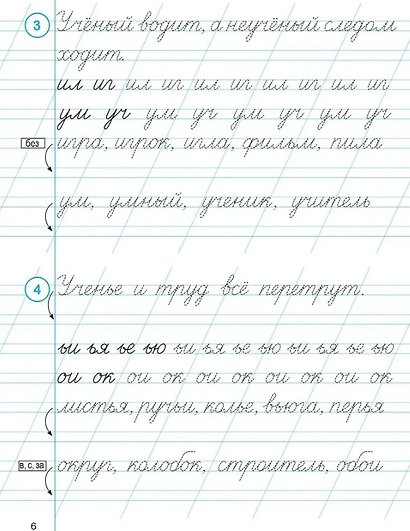 3 Учёный водит, а неучёный следом
ходит.
ил иг ил иг ил иг ил иг ил иг
ум уч ум уч ум уч ум уч ум уч
без игра, игрок, игла, фильм, пила
ум, умный, ученик, учитель
4 Ученье и труд всё перетрут.
ьи ья ье ью ьи ья ье ью ьи ья ье ью
ои ок ои ок ои ок ои ок ои ок
листья, ручьи, колье, вьюга, перья
в, с, за округ, колобок, строитель, обои
6